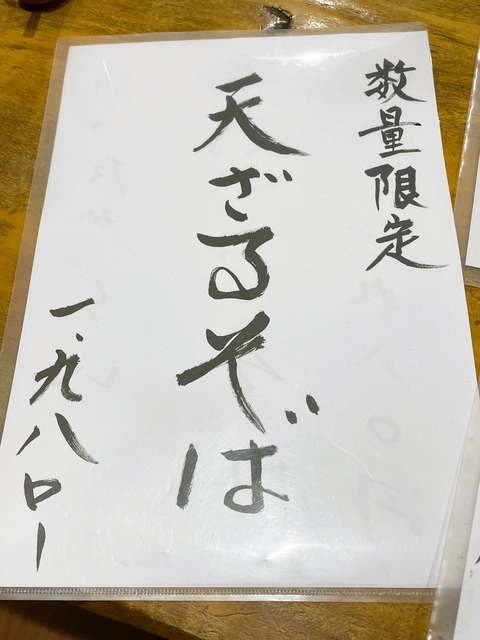 数量限定
天ざるそば
一、九八〇ー